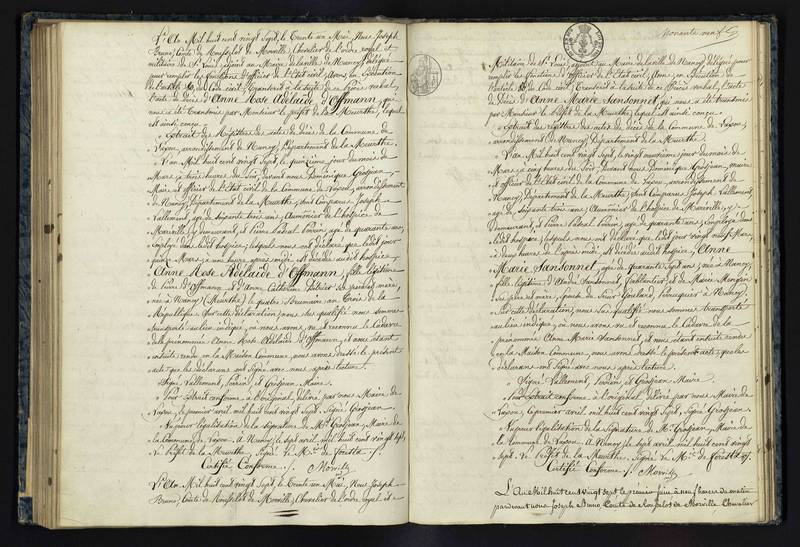 L'An Mil huit cent vingt Sept, le Trente un Mai, Nous Joseph
Bruno, Comte de Monspelot de Morville, Chevalier de l'ordre royal et
militaire de St Louis, adjoint au Maire de la ville de Nancy, délégué
pour remplir les fonctions d'officier de l'Etat civil, Avons, en Exécution
de l'article 80 du Code civil, Transcrit à la suite de ce Procès verbal,
l'acte de Décès d'Anne Rose Adélaïde d'Offmann, qui
nous a été transmis par Monsieur le préfet de la Meurthe, lequel
Est ainsi conçu
Extrait des Registres des actes de décès de la Commune de
arrondissement de Nancy, Département de la Meurthe.
L'an Mil huit cent vingt Sept, le quinzième jour du mois de
Mars, à trois heures du Soir, devant nous Dominique Grosjean,
Maire et officier de l'Etat civil de la Commune de arrondissement
de Nancy, Département de la Meurthe, Sont Comparus Joseph
Vallement, agé de Soixante trois ans, Aumônier de l'hospice de
Maréville, y demeurant, et Pierre agé de quarante ans,
Employé dans ledit hospice; lesquels nous ont déclaré que ledit jour
quinze Mars, à une heure après midi, Est décédée audit hospice,
Anne Rose Adélaïde d'Offmann, fille légitime
de Pierre d'Offmann et d'Anne Catherine ses père et mère,
née à Nancy (Meurthe) le quatre Brumaire an Trois de la
République. Sur cette déclaration, nous Sus qualifié nous sommes
transporté au lieu indiqué, où nous avons vu et reconnu le Cadavre
de la prénommée Anne Rose Adélaïde d'Offmann, et nous étant
ensuite rendu en la Maison Commune, nous avons dressé le présent
acte que les déclarans ont Signé avec nous après lecture.
Signé Vallement, et Grosjean Maire.
Pour Extrait conforme à l'original, délivré par nous Maire de
le premier avril mil huit cent vingt Sept. Signé Grosjean.
Vu pour légalisation de la Signature de Mr Grosjean, Maire de
la Commune de A Nancy, le Sept avril mil huit cent vingt Sept,
le Préfet de la Meurthe, Signé le Mis de Foresta.
Certifié Conforme. Morville
L'An Mil huit cent vingt Sept, le Trente un Mai, Nous Joseph
Bruno, Comte de Monspelot de Morville, Chevalier de l'ordre royal et
Nonante neuf
Militaire de St Louis, adjoint au Maire de la ville de Nancy, délégué pour
remplir les fonctions d'officier de l'Etat Civil, Avons, en Exécution de
l'article 80 du Code civil, Transcrit à la suite de ce Procès verbal, l'acte
de Décès d'Anne Marie Sansonnet, qui nous a été transmis
par Monsieur le Préfet de la Meurthe, lequel est ainsi conçu
Extrait des registres des actes de décès de la Commune de
arrondissement de Nancy, Département de la Meurthe.
L'an Mil huit cent vingt Sept, le vingt neuvième jour du mois de
Mars, à cinq heures du Soir, devant nous Dominique Grosjean, maire
et officier de l'Etat civil de la Commune de arrondissement de
Nancy, Département de la Meurthe, Sont Comparus Joseph Vallement,
agé de Soixante trois ans, Aumônier de l'hospice de Maréville, y
Demeurant, et Pierre agé de quarante ans, Employé dans
ledit hospice; lesquels nous ont déclaré que ledit jour vingt neuf Mars,
à deux heures de l'après midi, Est décédée audit hospice, Anne
Marie Sansonnet, agée de quarante Sept ans, née à Nancy,
fille légitime d'André Sansonnet, et de Marie
Ses père et mère, épouse de à Nancy.
Sur cette déclaration, nous Sus qualifié nous sommes transporté
au lieu indiqué, où nous avons vu et reconnu le Cadavre de la
prénommée Anne Marie Sansonnet, et nous étant ensuite rendu
en la Maison Commune, nous avons dressé le présent acte, que les
déclarans ont Signé avec nous après lecture.
Signé Vallement, et Grosjean Maire.
Pour Extrait conforme à l'original délivré par nous Maire de
le premier avril mil huit cent vingt Sept. Signé Grosjean.
Vu pour légalisation de la Signature de Mr Grosjean, Maire de
la Commune de A Nancy, le Sept avril, mil huit cent vingt
Sept. le Préfet de la Meurthe, Signé le Mis de Foresta.
Certifié Conforme. Morville
L'An Mil huit cent vingt Sept le premier juin à neuf heures du matin
pardevant nous Joseph Bruno, Comte de Monspelot de Morville Chevalier